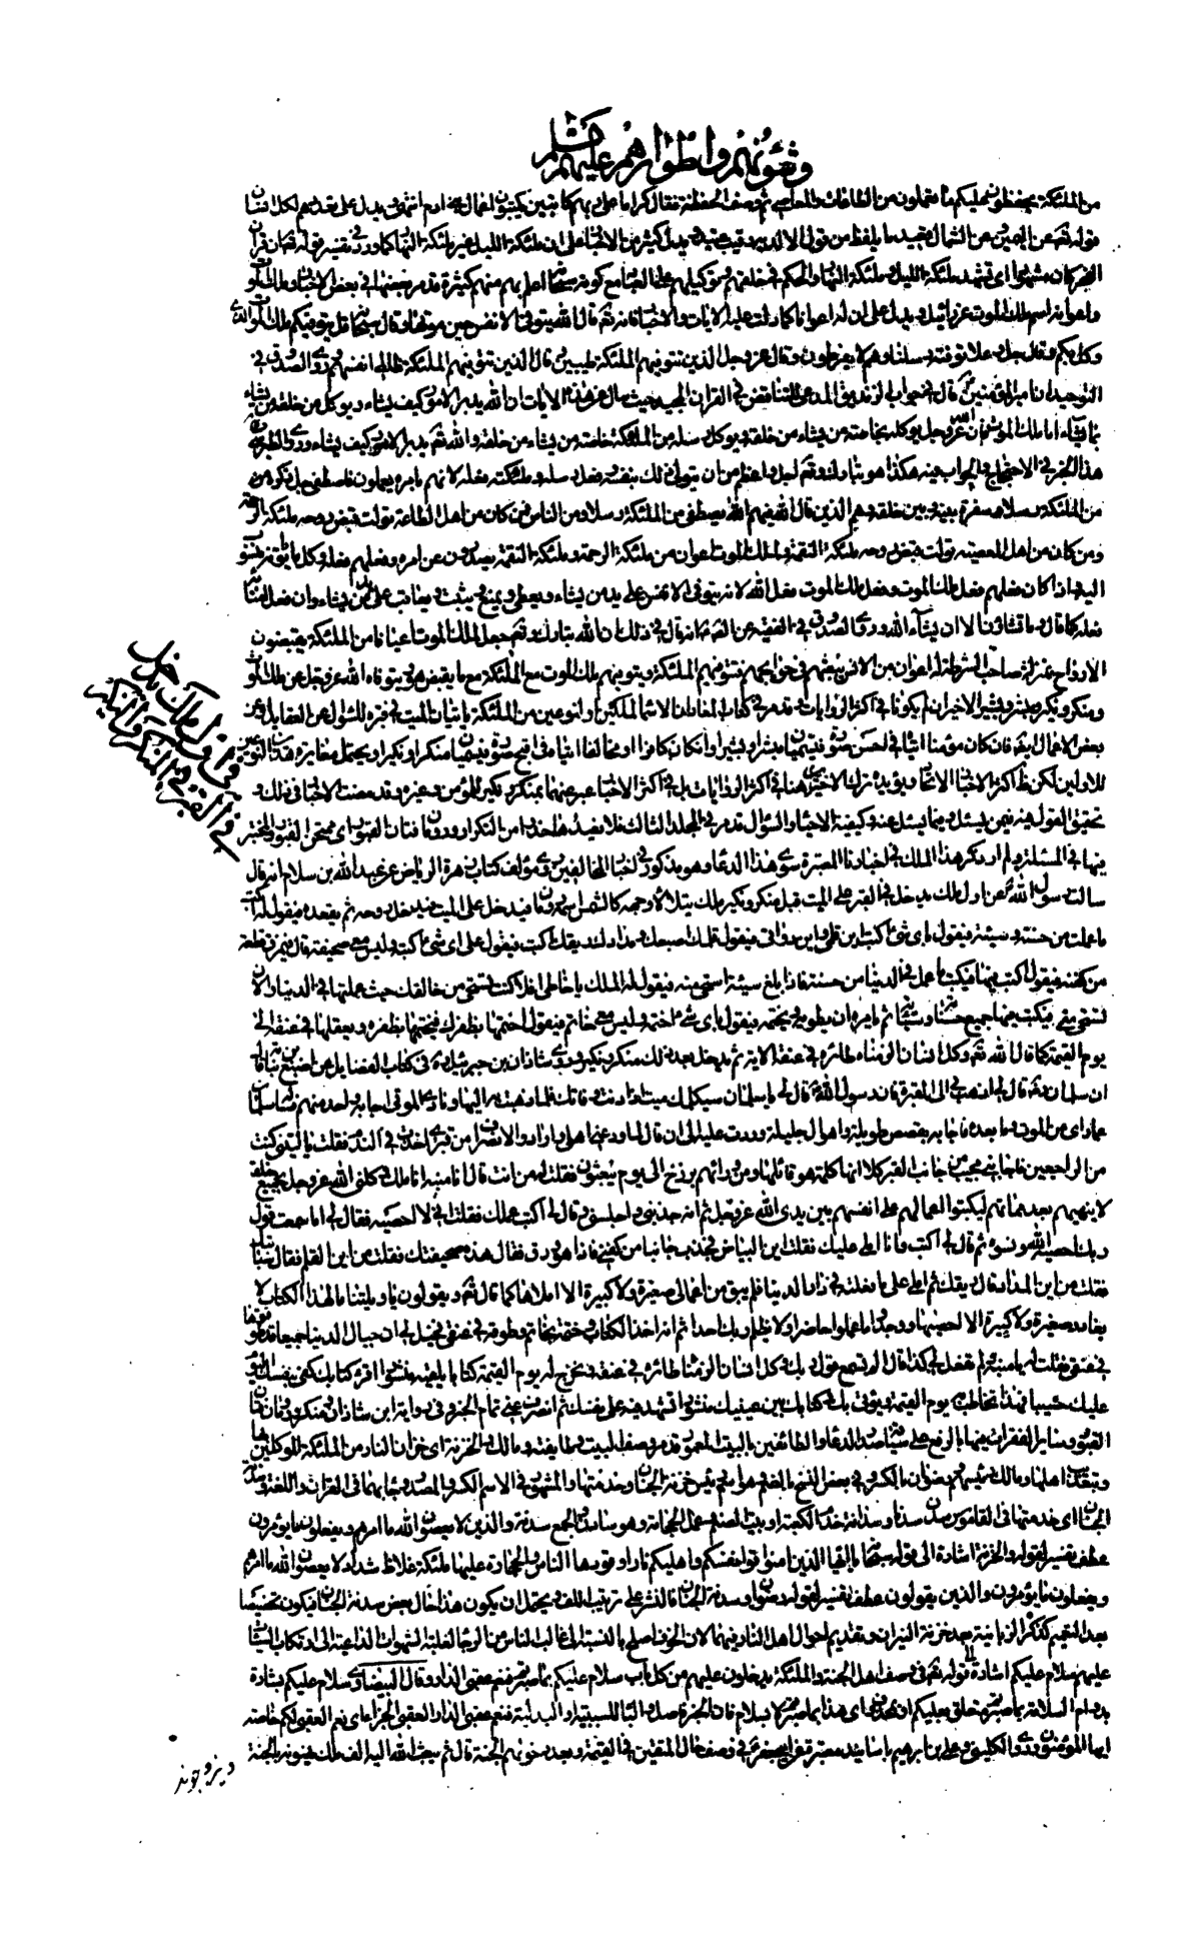 وشؤنهم واطوارهم عليهم السلام
من الملئكة يحفظون عليكم ما تعملون من الطاعات والمعاصى ثم وصف الحفظة فقال كراما على ربهم كاتبين يكتبون اعمال بنى ادم انتهى ويدل على تعددهم لكل انسان
قوله تعالى عن اليمين وعن الشمال قعيد ما يلفظ من قول الا لديه رقيب عتيد ويدل كثير من الاخبار على ان ملئكة الليل غير ملئكة النهار كما ورد فى تفسير قوله تعالى ان قرآن
الفجر كان مشهودا اى تشهده ملئكة الليل وملئكة النهار والحكم فى خلقهم وتوكيلهم على العباد مع كونه سبحانه اعلم بهم منهم كثيرة قد مر بعضها فى بعض الاخبار وملك الموت
واعوانه اسم ملك الموت عزرائيل ويدل على ان له اعوانا كما دلت عليه الايات والاخبار فانه تعالى قال الله يتوفى الانفس حين موتها وقال سبحانه قل يتوفيكم ملك الموت الذى
وكل بكم وقال جل وعلا توفته رسلنا وهم لا يفرطون وقال عز وجل الذين تتوفيهم الملئكة طيبين وقال الذين تتوفيهم الملئكة ظالمى انفسهم وروى الصدوق فى
التوحيد ان امير المؤمنين قال فى جواب الزنديق المدعى للتناقض فى القران المجيد حيث سال عن هذه الايات ان الله يدبر الامور كيف يشاء ويوكل من خلقه من يشاء
بما يشاء اما ملك الموت فان الله عز وجل يوكله بخاصة من يشاء من خلقه ويوكل رسله من الملئكة خاصة من يشاء من خلقه والله تعالى يدبر الامور كيف يشاء وروى الطبرسى
هذا الخبر فى الاحتجاج والجواب فيه هكذا هو تبارك وتعالى اجل واعظم من ان يتولى ذلك بنفسه وفعل رسله وملئكته فعله لانهم بامره يعملون فاصطفى جل ذكره من
من الملئكة رسلا وسفرة بينه وبين خلقه وهم الذين قال الله فيهم الله يصطفى من الملئكة رسلا ومن الناس فمن كان من اهل الطاعة تولت قبض روحه ملئكة الرحمة
ومن كان من اهل المعصية تولت قبض روحه ملئكة النقمة ولملك الموت اعوان من ملئكة الرحمة وملئكة النقمة يصدرون عن امره وفعلهم فعله وكل ما ياتونه منسوب
اليه واذا كان فعلهم فعل ملك الموت وفعل ملك الموت فعل الله لانه يتوفى الانفس على يد من يشاء ويعطى ويمنع ويثيب ويعاقب على يد من يشاء وان فعل امنائه
فعله كما قال وما تشاؤن الا ان يشآء الله وروى الصدوق فى الفقيه عن الصادق انه قال فى ذلك ان الله تبارك وتعالى جعل لملك الموت اعوانا من الملئكة يقبضون
الارواح بمنزلة صاحب الشرطة له اعوان من الانس يبعثهم فى حوائجهم فتتوفيهم الملئكة ويتوفيهم ملك الموت مع الملئكة مع ما يقبض هو ويتوفاه الله عز وجل عن ملك الموت
ومنكر ونكير ومبشر وبشير الاخيران لم يكونا فى اكثر الروايات وقد مر فى كتاب المعاد انه الاسما الملكين او لنوعين من الملئكة ياتيان الميت فى قبره للسؤال عن العقايد وعن
بعض الاعمال ايضا فان كان مؤمنا اتياه فى احسن صورة فيسميان مبشرا وبشيرا وان كان كافرا او مخالفا اتياه فى اقبح صورة فيسميان منكرا ونكيرا ويحتمل مغايرة هذين النوعين
للاولين لكن ظاهر اكثر الاخبار الاتحاد ويؤيده ترك الاخيرين هنا فى اكثر الروايات بل فى اكثر الاخبار عبر عنهما بمنكر ونكير للمؤمن وغيره وقد مضت الاخبار فى ذلك و
تحقيق القول فيه فيمن يسئل وعما يسئل عنه وكيفية الاحياء والسؤال قد مر فى المجلد الثالث فلا نعيده هاهنا حذرا من التكرار ورومان فتان القبور اى ممتحن القبور والمختبر
فيها فى المسئلة ولم ار ذكر هذا الملك فى اخبارنا المعتبرة سوى هذا الدعاء وهو مذكور فى اخبار المخالفين روى مؤلف كتاب زهرة الرياض عن عبد الله بن سلام انه قال
سالت رسول الله عن اول ملك يدخل فى القبر على الميت قبل منكر ونكير ملك يتلالأ وجهه كالشمس اسمه رومان فيدخل على الميت فيدخل روحه ثم يقعده فيقول له اكتب
ما عملت من حسنة وسيئة فيقول باى شئ اكتب اين قلمى واين دواتى فيقول قلمك اصبعك ومدادك ريقك اكتب فيقول على اى شئ اكتب وليس معى صحيفة قال فيمزق قطعة
من كفنه فيقول اكتب فيها فيكتب ما عمل فى الدنيا من حسنة فاذا بلغ سيئة استحيى منه فيقول له الملك يا خاطى افلا كنت تستحيى من خالقك حيث عملتها فى الدنيا والان
تستحيى منى فيكتب فيها جميع حسناته وسيئاته ثم يامره ان يطويه ويختمه فيقول باى شئ اختمه وليس معى خاتم فيقول اختمها بظفرك فيختمها بظفره ويعلقها فى عنقه الى
يوم القيمة كما قال الله تعالى وكل انسان الزمناه طائره فى عنقه الاية ثم يدخل بعد ذلك منكر ونكير وروى شاذان بن جبرئيل ره فى كتاب الفضايل عن اصبغ بن نباته
ان سلمان رضى قال لى اذهب بى الى المقبرة فان رسول الله قال لى يا سلمان سيكلمك ميت اذا دنت وفاتك فلما ذهبت به اليها ونادى الموتى اجابه واحد منهم فساله سلمان
عما راى من الموت وما بعده فاجابه بقصص طويلة واهوال جليلة وردت عليه الى ان قال لما ودعنى اهلى وارادوا الانصراف من قبرى اخذت فى الندم فقلت يا ليتنى كنت
من الراجعين فاجابنى مجيب من جانب القبر كلا انها كلمة هو قائلها ومن ورائهم برزخ الى يوم يبعثون فقلت له من انت قال انا منبه انا ملك وكلنى الله عز وجل بجميع خلقه
لانبههم بعد مماتهم ليكتبوا اعمالهم على انفسهم بين يدى الله عز وجل ثم انه جذبنى واجلسنى وقال لى اكتب عملك فقلت انى لا احصيه فقال لى اما سمعت قول
ربك احصيه الله ونسوه ثم قال لى اكتب وانا املى عليك فقلت اين البياض فجذب جانبا من كفنى فاذا هو رق فقال هذه صحيفتك فقلت من اين القلم فقال سبابتك
فقلت من اين المداد قال ريقك ثم املى على ما فعلته فى دار الدنيا فلم يبق من اعمالى صغيرة ولا كبيرة الا املاها كما قال تعالى ويقولون يا ويلتنا مال هذا الكتاب لا
يغادر صغيرة ولا كبيرة الا احصيها ووجدوا ما عملوا حاضرا ولا يظلم ربك احدا ثم انه اخذ الكتاب وختمه بخاتم وطوقه فى عنقى فخيل لى ان جبال الدنيا جميعا قد طوقوها
فى عنقى فقلت له يا منبه ولم تفعل بى كذا قال الم تسمع قول ربك وكل انسان الزمناه طائره فى عنقه ونخرج له يوم القيمة كتابا يلقيه منشورا اقرء كتابك كفى بنفسك اليوم
عليك حسيبا فهذا تخاطب به يوم القيمة ويؤتى بك وكتابك بين عينيك منشورا تشهد فيه على نفسك ثم انصرف عنى تمام الخبر وفى رواية ابن شاذان منكر ورومان فتان
القبور وسائر الفقرات فيهما بالرفع على سياق صدر الدعاء والطائفين بالبيت المعمور قد مر وصف البيت وطايفيه ومالك والخزنة اى خزان النار من الملئكة الموكلين بها
وبعذاب اهلها ومالك رئيسهم ورضوان بالكسر وفى بعض النسخ بالضم وهو اسم رئيس خزنة الجنان وخدمتها والمشهور فى الاسم الكسر والمصدر جاء بهما فى القران واللغة وسدنة
الجنان اى خدمتها فى القاموس سدن سدنا وسدانة خدم الكعبة او بيت الصنم وعمل الحجابة وهو سادن والجمع سدنة والذين لا يعصون الله ما امرهم ويفعلون ما يؤمرون
عطف تفسير لقوله والخزنة اشارة الى قوله سبحانه يا ايها الذين امنوا قوا انفسكم واهليكم نارا وقودها الناس والحجارة عليها ملئكة غلاظ شداد لا يعصون الله ما امرهم
ويفعلون ما يؤمرون والذين يقولون عطف تفسير لقوله ورضوان وسدنة الجنان فالنشر على ترتيب اللف ويحتمل ان يكون هذا حال بعض سدنة الجنان فيكون تخصيصا
بعد التعميم كذكر الزبانية بعد خزنة النيران وتقديم احوال اهل النار فيهما لان الخوف اصلح بالنسبة الى غالب الناس من الرجا لغلبة الشهوات الداعية الى ارتكاب السيئات
عليهم سلام عليكم اشارة الى قوله تعالى فى وصف اهل الجنة والملئكة يدخلون عليهم من كل باب سلام عليكم بما صبرتم فنعم عقبى الدار وقال البيضاوى سلام عليكم بشارة
بدوام السلامة بما صبرتم متعلق بعليكم او بمحذوف اى هذا بما صبرتم لا بسلام فان الخبر فاصل والباء للسببية او البدلية فنعم عقبى الدار العقبى الجزاء اى نعم العقبى لكم خاصة
ايها المؤمنون وروى الكلينى وعلى بن ابرهيم باسانيد معتبرة عن ابى جعفر فى وصف حال المتقين فى القيمة وبعد دخولهم الجنة قال ثم يبعث الله اليه الف ملك يهنونه بالجنة
ويزوجونه
فى ان اول ملك يدخل
فى القبر قبل المنكر والنكير